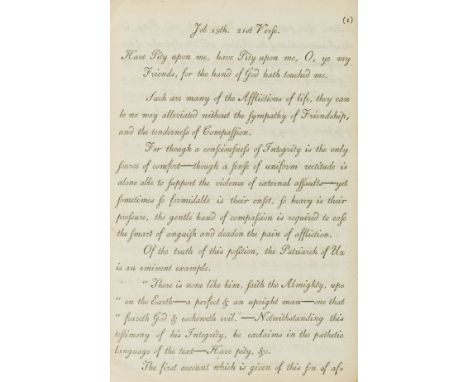 (1)
Job 19th. 21st Verse.
Have Pity upon me, have Pity upon me, O, ye my
Friends, for the hand of God hath touched me.
Such are many of the Afflictions of life, they can
be no way alleviated without the sympathy of Friendship,
and the tenderness of Compassion.
For though a consciousness of Integrity is the only
source of comfort—though a sense of uniform rectitude is
alone able to support the violence of external assaults—yet
sometimes so formidable is their onset, so heavy is their
pressure, the gentle hand of compassion is required to ease
the smart of anguish and deaden the pain of affliction.
Of the truth of this position, the Patriarch of Uz
is an eminent example.
" There is none like him, saith the Almighty, upo
" on the Earth—a perfect & an upright man—one that
" feareth God & escheweth evil.—Notwithstanding this
testimony of his Integrity, he exclaims in the pathetic
language of the text—Have pity, &c.
The first account which is given of this son of af-